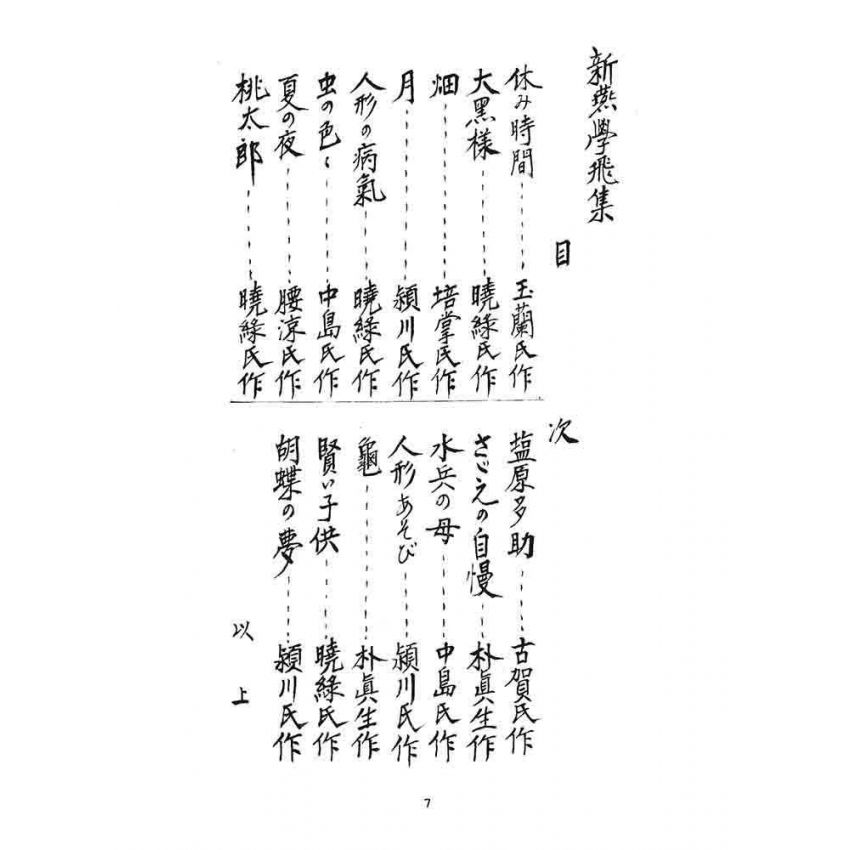 新燕學飛集
目次
休み時間……玉蘭氏作
大黑樣……曉綠氏作
畑……培掌氏作
月……潁川氏作
人形の病氣……曉綠氏作
虫の色〻……中島氏作
夏の夜……腰涼氏作
桃太郎……曉綠氏作
塩原多助……古賀氏作
さゞえの自慢……朴眞生作
水兵の母……中島氏作
人形あそび……潁川氏作
龜……朴眞生作
賢い子供……曉綠氏作
胡蝶の夢……潁川氏作
以上
7